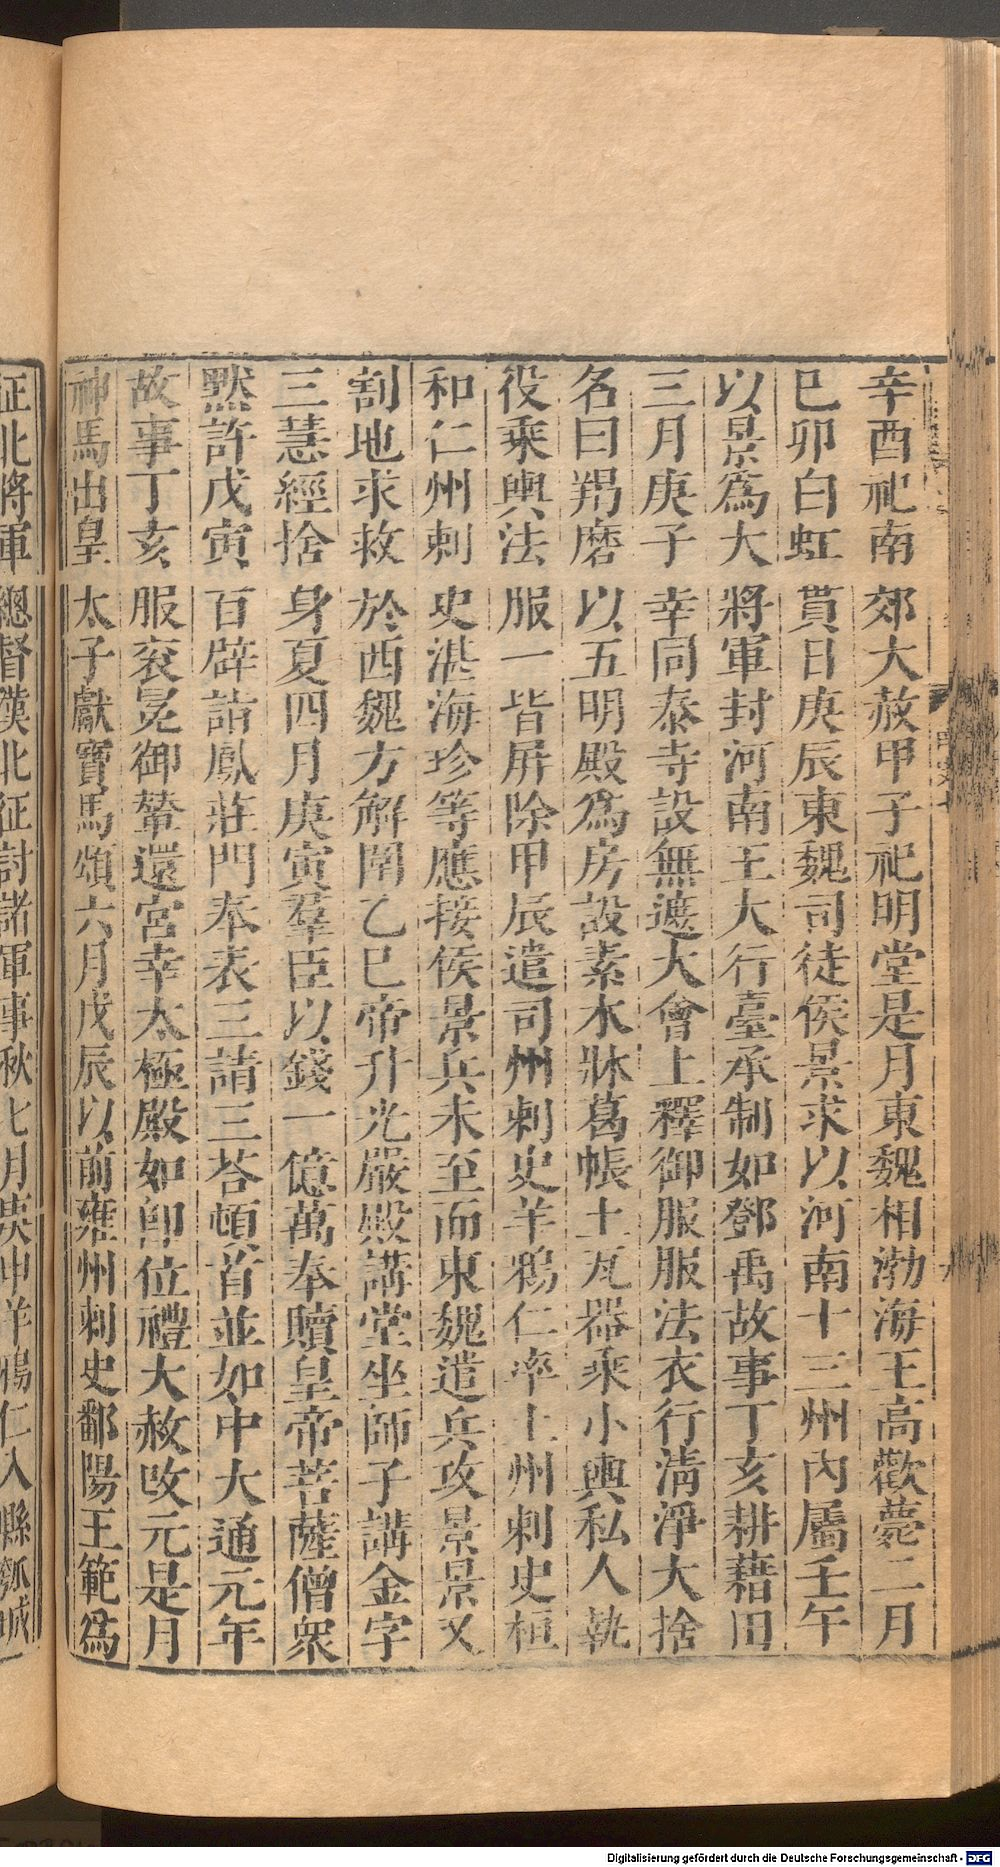 辛酉祀南郊大赦甲子祀明堂是月東魏相渤海王高歡薨二月
巳卯白虹貫日庚辰東魏司徒侯景求以河南十三州內屬壬午
以景爲大將軍封河南王大行臺承制如鄧禹故事丁亥耕藉田
三月庚子幸同泰寺設無遮大會上釋御服服法衣行淸淨大捨
名曰羯磨以五明殿爲房設素木牀葛帳土瓦器乘小輿私人執
役乘輿法服一皆屏除甲辰遣司州刺史羊鴉仁率土州刺史桓
和仁州刺史湛海珍等應接侯景兵未至而東魏遣兵攻景景又
割地求救於西魏方解圍乙巳帝升光嚴殿講堂坐師子講金字
三慧經捨身夏四月庚寅羣臣以錢一億萬奉贖皇帝菩薩僧衆
黙許戊寅百辟詣鳳莊門奉表三請三荅頓首並如中大通元年
故事丁亥服衮冕御輦還宮幸太極殿如卽位禮大赦改元是月
神馬出皇太子獻寶馬頌六月戊辰以前雍州刺史鄱陽王範爲
征北將軍總督漢北征討諸軍事秋七月庚申羊鴉仁入縣瓠城
Digitalisierung gefördert durch die Deutsche Forschungsgemeinschaft - DFG